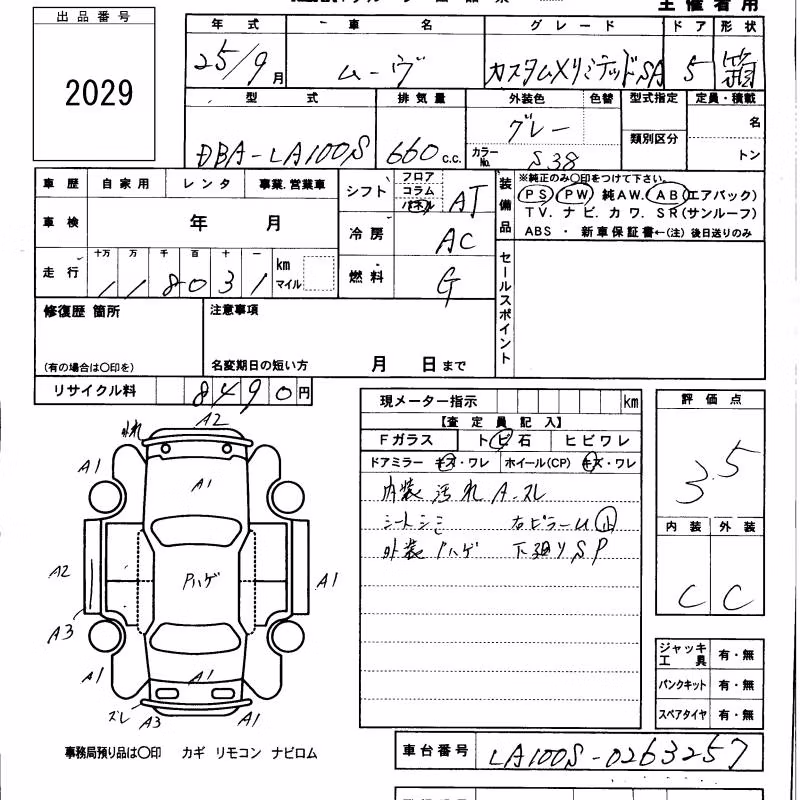 主催者用
出品番号
2029
年式 車名 グレード ドア 形状
25/9月 ムーヴ カスタムXリミテッドSA 5 箱
型式 排気量 外装色 色替 型式指定 定員・積載
DBA-LA100S 660 c.c. グレー 類別区分 名
カラーNo. S38 トン
車歴 自家用 レンタ 事業.営業車
シフト フロア コラム パネル AT
車検 年 月
冷房 AC
走行 十万 万 千 百 十 一
118031 km マイル
燃料 G
装備品 ※純正のみ○印をつけて下さい。
PS PW 純AW. AB(エアバック)
TV. ナビ. カワ. SR(サンルーフ)
ABS ・ 新車保証書←(注) 後日送りのみ
セールスポイント
修復歴 箇所 注意事項
(有の場合は○印を) 名変期日の短い方 月 日まで
リサイクル料 8490円
現メーター指示 km
【査定員記入】
Fガラス トビ石 ヒビワレ
ドアミラー キズ・ワレ ホイール(CP) キズ・ワレ
内装 汚れ A.スレ
シートシミ 右ピラーU止
外装 Pハゲ 下廻りSP
評価点
3.5
内装 外装
C C
ジャッキ工具 有・無
パンクキット 有・無
スペアタイヤ 有・無
A2
A1
A1
A2 Pハゲ A1
A3
A1 A1
ズレ A3 A1
事務局預り品は○印 カギ リモコン ナビロム
車台番号 LA100S-0263257